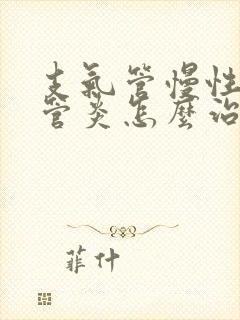 支氣管慢性
管炎怎麼治
菲什